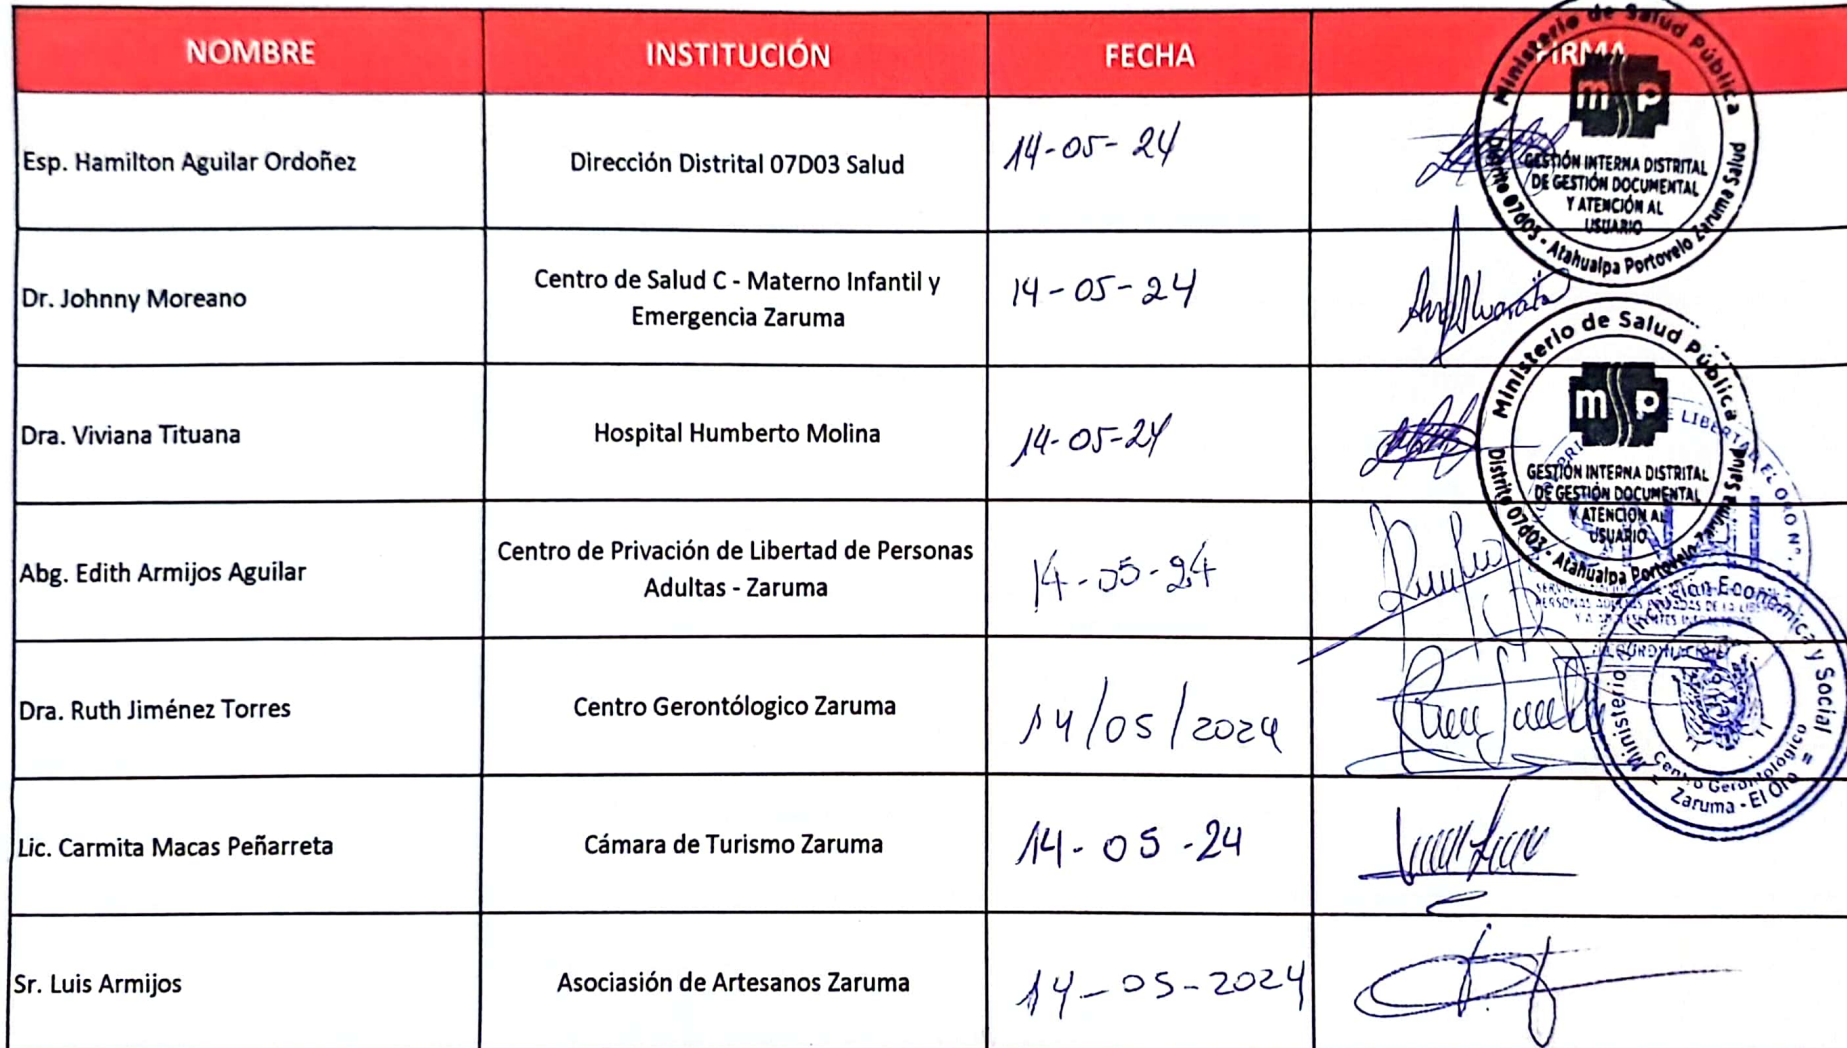 NOMBRE INSTITUCIÓN FECHA FIRMA
Esp. Hamilton Aguilar Ordoñez Dirección Distrital 07D03 Salud 14-05-24
Dr. Johnny Moreano Centro de Salud C - Materno Infantil y
Emergencia Zaruma 14-05-24
Dra. Viviana Tituana Hospital Humberto Molina 14-05-24
Abg. Edith Armijos Aguilar Centro de Privación de Libertad de Personas
Adultas - Zaruma 14-05-24
Dra. Ruth Jiménez Torres Centro Gerontólogico Zaruma 14/05/2024
Lic. Carmita Macas Peñarreta Cámara de Turismo Zaruma 14-05-24
Sr. Luis Armijos Asociasión de Artesanos Zaruma 14-05-2024
Ministerio de Salud Pública
msp
GESTIÓN INTERNA DISTRITAL
DE GESTIÓN DOCUMENTAL
Y ATENCIÓN AL
USUARIO
Distrito 07d03 - Atahualpa Portovelo Zaruma Salud
Ministerio de Salud Pública
msp
GESTIÓN INTERNA DISTRITAL
DE GESTIÓN DOCUMENTAL
Y ATENCIÓN AL
USUARIO
Distrito 07d03 - Atahualpa Portovelo Zaruma Salud
Ministerio Inclusión Económica y Social
Centro Gerontológico
Zaruma - El Oro